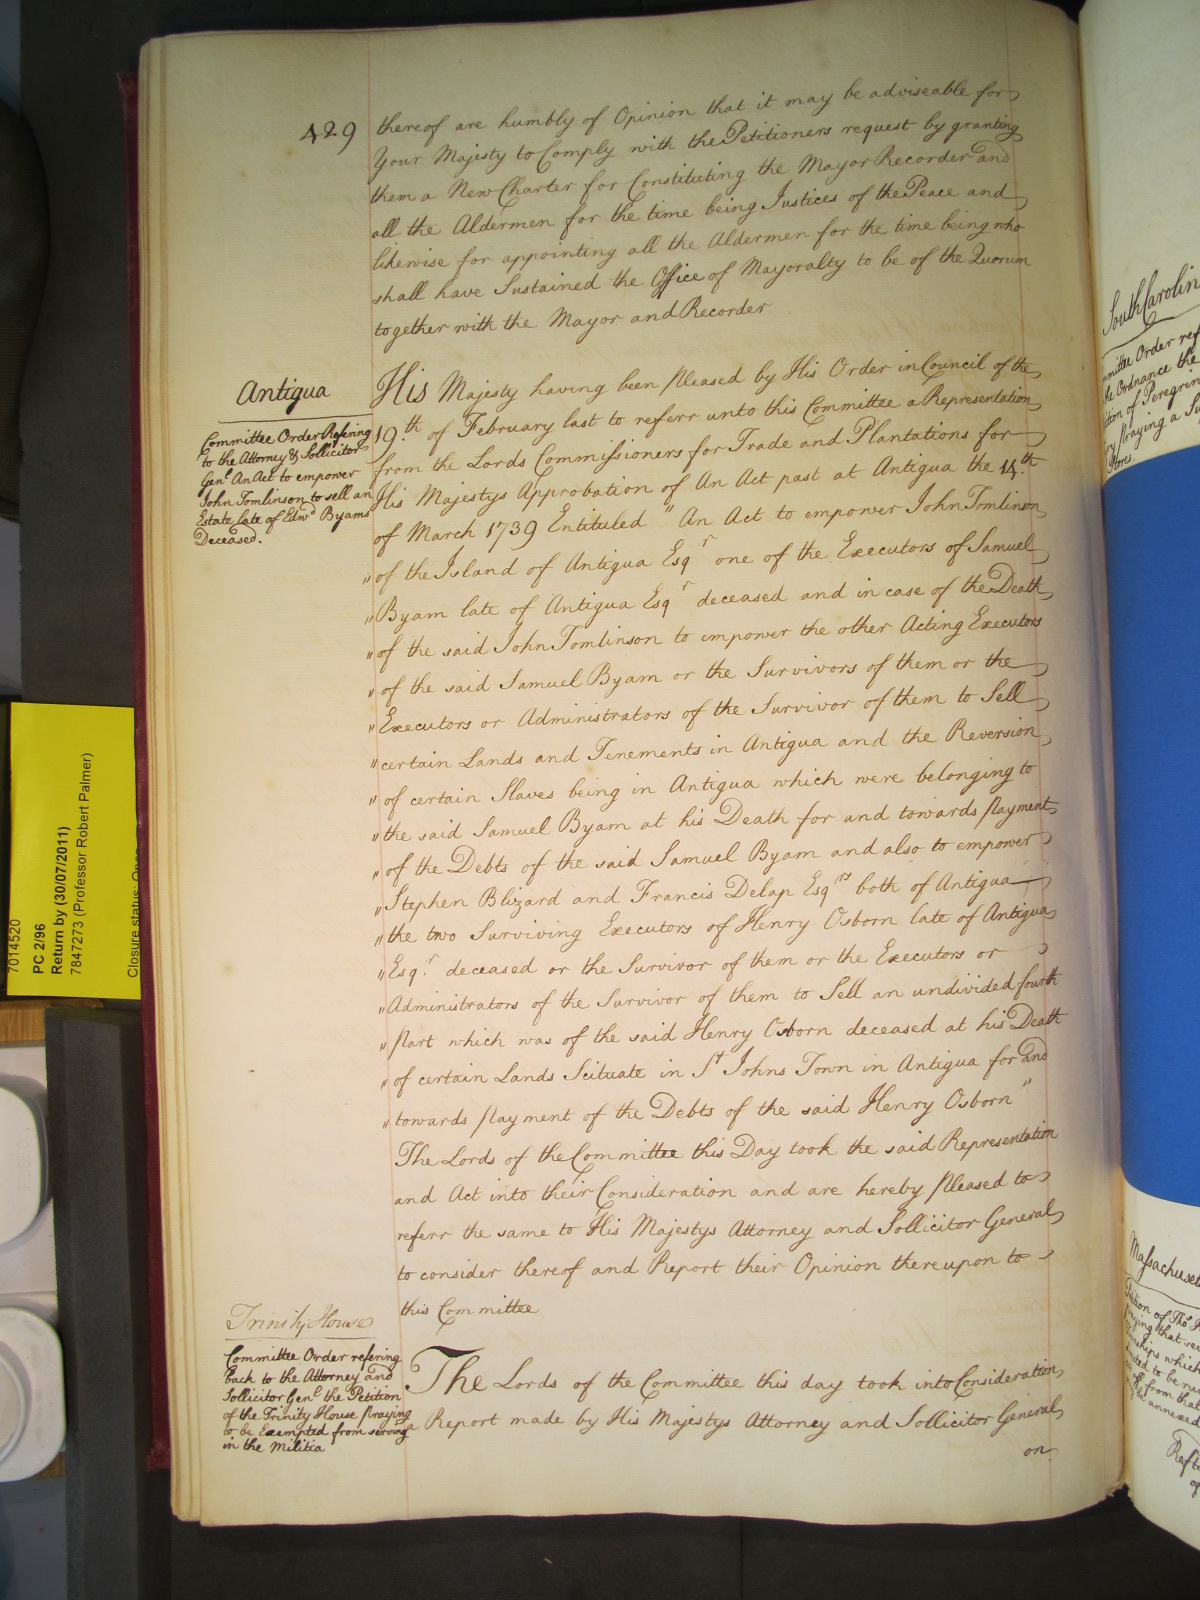 429
thereof are humbly of Opinion that it may be adviseable for
Your Majesty to Comply with the Petitioners request by granting
them a New Charter for Constituting the Mayor Recorder and
all the Aldermen for the time being Justices of the Peace and
likewise for appointing all the Aldermen for the time being who
shall have Sustained the Office of Mayoralty to be of the Quorum
together with the Mayor and Recorder
Antigua
Committee Order Refering
to the Attorney & Sollicitor
Genl. An Act to empower
John Tomlinson to sell an
Estate late of Edwd Byams
Deceased.
His Majesty having been pleased by His Order in Council of the
19th. of February last to referr unto this Committee a Representation
from the Lords Commissioners for Trade and Plantations for
His Majestys Approbation of An Act past at Antigua the 14th.
of March 1739 Entituled "An Act to empower John Tomlinson
"of the Island of Antigua Esqr one of the Executors of Samuel
"Byam late of Antigua Esqr deceased and in case of the Death
"of the said John Tomlinson to empower the other Acting Executors
"of the said Samuel Byam or the Survivors of them or the
"Executors or Administrators of the Survivor of them to Sell
"certain Lands and Tenements in Antigua and the Reversion
"of certain Slaves being in Antigua which were belonging to
"the said Samuel Byam at his Death for and towards payment
"of the Debts of the said Samuel Byam and also to empower
"Stephen Blizard and Francis Delap Esqrs both of Antigua
"the two Surviving Executors of Henry Osborn late of Antigua
"Esqr. deceased or the Survivor of them or the Executors or
"Administrators of the Survivor of them to Sell an undivided fourth
"part which was of the said Henry Osborn deceased at his Death
"of certain Lands Scituate in St Johns Town in Antigua for and
"towards payment of the Debts of the said Henry Osborn"
The Lords of the Committee this Day took the said Representation
and Act into their Consideration and are hereby pleased to
referr the same to His Majestys Attorney and Sollicitor General
to consider thereof and Report their Opinion thereupon to
this Committee
Trinity House
Committee Order refering
back to the Attorney and
Sollicitor Genl. the Petition
of the Trinity House praying
to be Exempted from serving
in the Militia
The Lords of the Committee this day took into Consideration
a Report made by His Majestys Attorney and Sollicitor General
on
7014520
PC 2/96
Return by (30/07/2011)
7847273 (Professor Robert Palmer)
Closure status: Open
South Carolin
Order ref
Ordnance the
of Peregrin
praying a
Stores
Massachuset
of Thos
that
which
to be
from that
annexed